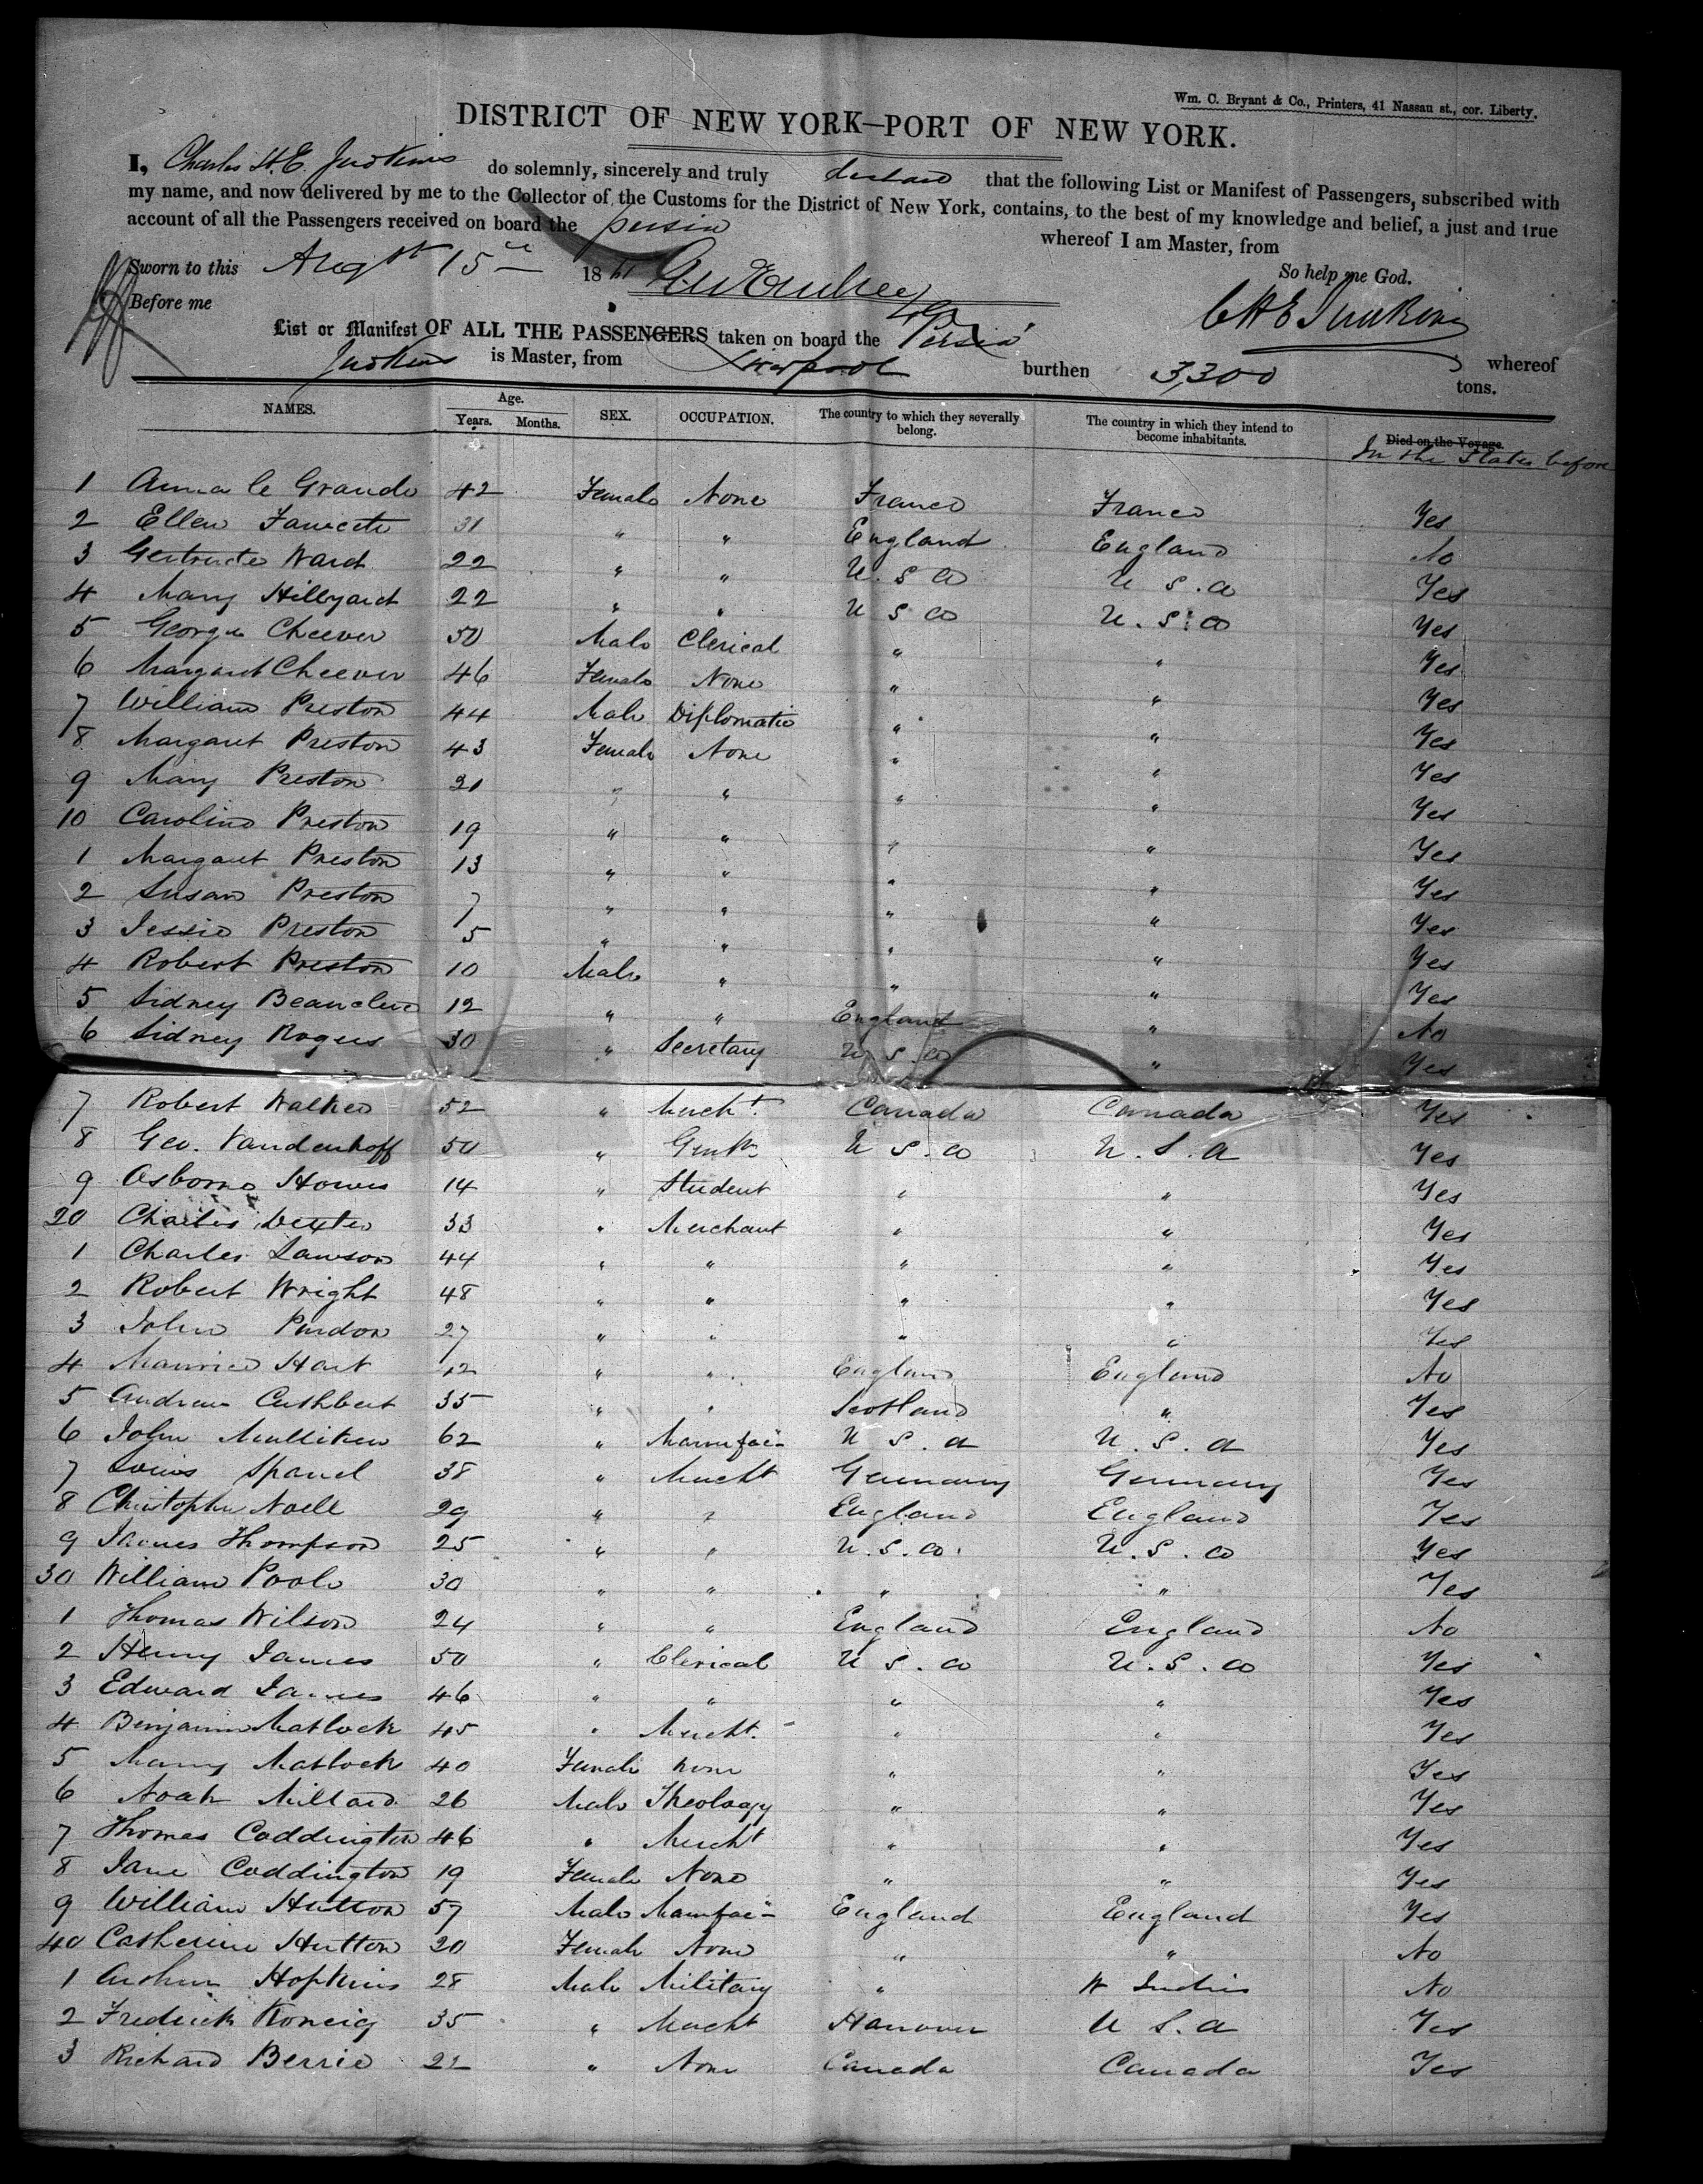 Wm. C. Bryant & Co., Printers, 41 Nassau st., cor. Liberty.
DISTRICT OF NEW YORK—PORT OF NEW YORK.
I, Charles H. E. Judkins do solemnly, sincerely and truly declare that the following List or Manifest of Passengers, subscribed with
my name, and now delivered by me to the Collector of the Customs for the District of New York, contains, to the best of my knowledge and belief, a just and true
account of all the Passengers received on board the Persia whereof I am Master, from
Sworn to this Augst 15th 1861 So help me God.
Before me CHE Judkins
List or Manifest OF ALL THE PASSENGERS taken on board the Persia whereof
Judkins is Master, from Liverpool burthen 3,300 tons.
NAMES. Age. Years. Months. SEX. OCCUPATION. The country to which they severally belong. The country in which they intend to become inhabitants. Died on the Voyage.
In the States before
1 Anna le Grande 42 Female None France France Yes
2 Ellen Fawcett 31 " " England England No
3 Gertrude Ward 22 " " U. S a U S. a Yes
4 Mary Hillyard 22 " " U S a U. S. a Yes
5 George Cheever 50 Male Clerical " " Yes
6 Margaret Cheever 46 Female None " " Yes
7 William Preston 44 Male Diplomatic " " Yes
8 Margaret Preston 43 Female None " " Yes
9 Mary Preston 21 " " " " Yes
10 Caroline Preston 19 " " " " Yes
1 Margaret Preston 13 " " " " Yes
2 Susan Preston 7 " " " " Yes
3 Jessie Preston 5 " " " " Yes
4 Robert Preston 10 Male " " " Yes
5 Sidney Beauclerc 12 " " England " No
6 Sidney Rogers 30 " Secretary U. S. a " Yes
7 Robert Walker 52 " Mercht. Canada Canada Yes
8 Geo. Vandenhoff 50 " Gentn. U S. a U. S. a Yes
9 Osborne Howes 14 " Student " " Yes
20 Charles Dexter 33 " Merchant " " Yes
1 Charles Lawson 44 " " " " Yes
2 Robert Wright 48 " " " " Yes
3 John Purdon 27 " " " " Yes
4 Maurice Hart " " England England No
5 Andrew Cuthbert 35 " " Scotland " Yes
6 John Mulliken 62 " Manufac- U S. a U. S. a Yes
7 Louis Spanel 38 " Mercht Germany Germany Yes
8 Christopher Noell 29 " " England England Yes
9 James Thompson 25 " " U. S. a. U. S. a Yes
30 William Poole 30 " " " " Yes
1 Thomas Wilson 24 " " England England No
2 Henry James 50 " Clerical U S. a U. S. a Yes
3 Edward James 46 " " " " Yes
4 Benjamin Matlock 45 " Mercht. " " Yes
5 Mary Matlock 40 Female None " " Yes
6 Noah Millard 26 Male Theology " " Yes
7 Thomas Coddington 46 " Mercht " " Yes
8 Jane Coddington 19 Female None " " Yes
9 William Hutton 57 Male Manufac- England England Yes
40 Catherine Hutton 20 Female None " " No
1 Arthur Hopkins 28 Male Military " W Indies No
2 Frederick Koneig 35 " Mercht Hanover U S. a Yes
3 Richard Berrie " None Canada Canada Yes